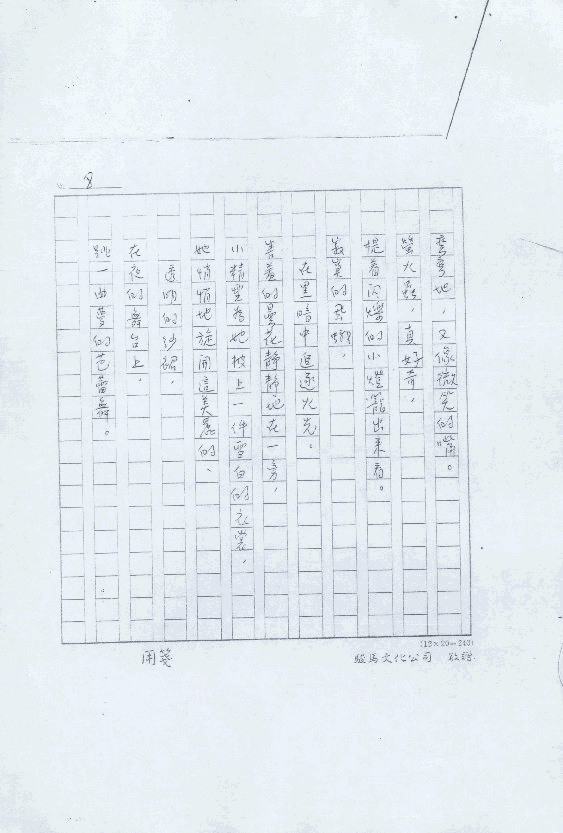 8
彎彎地，又像微笑的嘴。
螢火蟲，真好奇，
提着閃爍的小燈籠出來看。
寂寞的飛蛾，
在黑暗中追逐火光。
害羞的曇花靜靜地在一旁，
小精靈為她披上一件雪白的衣裳，
她悄悄地旋開這美麗的、
透明的紗裙，
在夜的舞台上，
跳一曲夢的芭蕾舞。
(12×20=240)
駿馬文化公司 敬贈
用箋